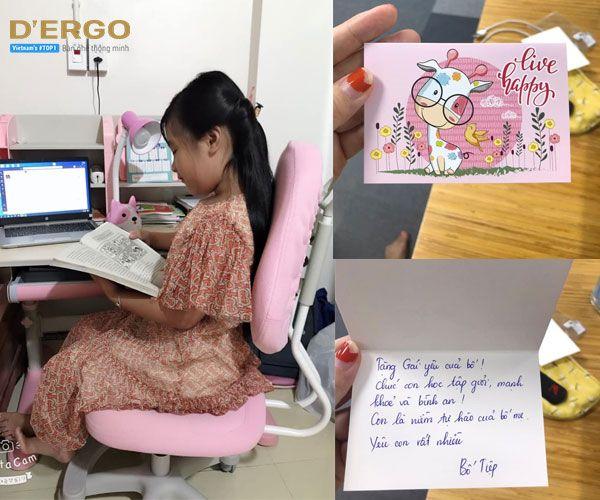 D'ERGO
Vietnam's #TOP1 Bàn ghế thông minh
live
happy
Tặng Gái yêu của bố !
Chúc con học tập giỏi, mạnh
khoẻ và bình an !
Con là niềm tự hào của bố mẹ.
Yêu con rất nhiều
Bố Tiệp